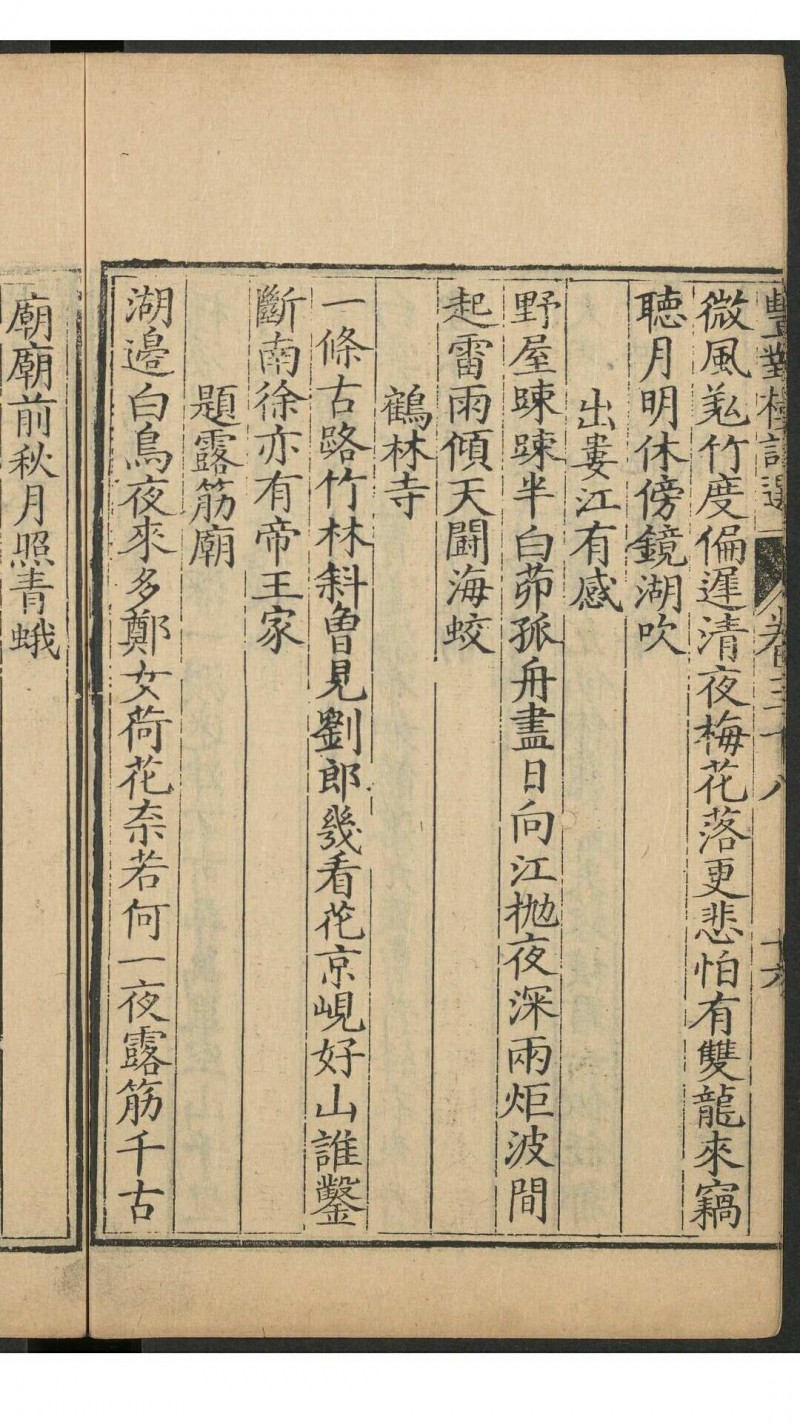 卷三十八
微風羗竹度偏遲清夜梅花落更悲怕有雙龍來竊
聽月明休傍鏡湖吹
出婁江有感
野屋踈踈半白茆孤舟盡日向江拋夜深兩炬波間
起雷雨傾天鬪海蛟
鶴林寺
一條古路竹林斜曾見劉郎幾看花京峴好山誰鑿
斷南徐亦有帝王家
題露筋廟
湖邉白鳥夜來多鄭女荷花柰若何一夜露筋千古
廟廟前秋月照青蛾